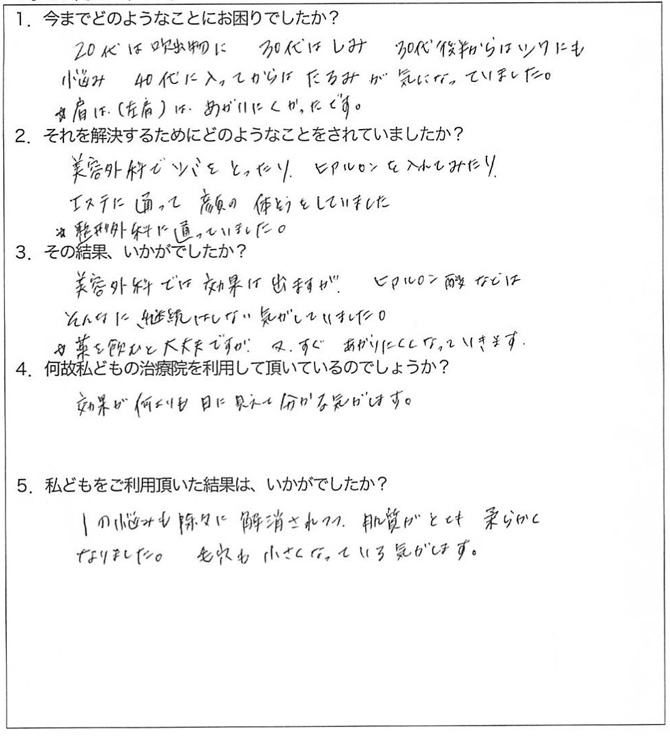 1．今までどのようなことにお困りでしたか？
20代は吹出物に 30代はしみ 30代後半からはシワにも
悩み 40代に入ってからは たるみが 気になっていました。
*肩は（左肩）は あがりにくかったです。
2．それを解決するためにどのようなことをされていましたか？
美容外科でシミをとったり、ヒアルロンを入れてみたり、
エステに通って 顔の 体そうをしていました
*整形外科に通っていました。
3．その結果、いかがでしたか？
美容外科では 効果は出ますが、ヒアルロン酸などは
そんなに 継続はしない気がしていました。
*薬を飲むと大丈夫ですが、又、すぐ あがりにくくなっていきます。
4．何故私どもの治療院を利用して頂いているのでしょうか？
効果が何よりも目に見えて分かる気がします。
5．私どもをご利用頂いた結果は、いかがでしたか？
1の悩みも除々に 解消されつつ、肌質がとても 柔らかく
なりました。 毛穴も 小さくなっている気がします。